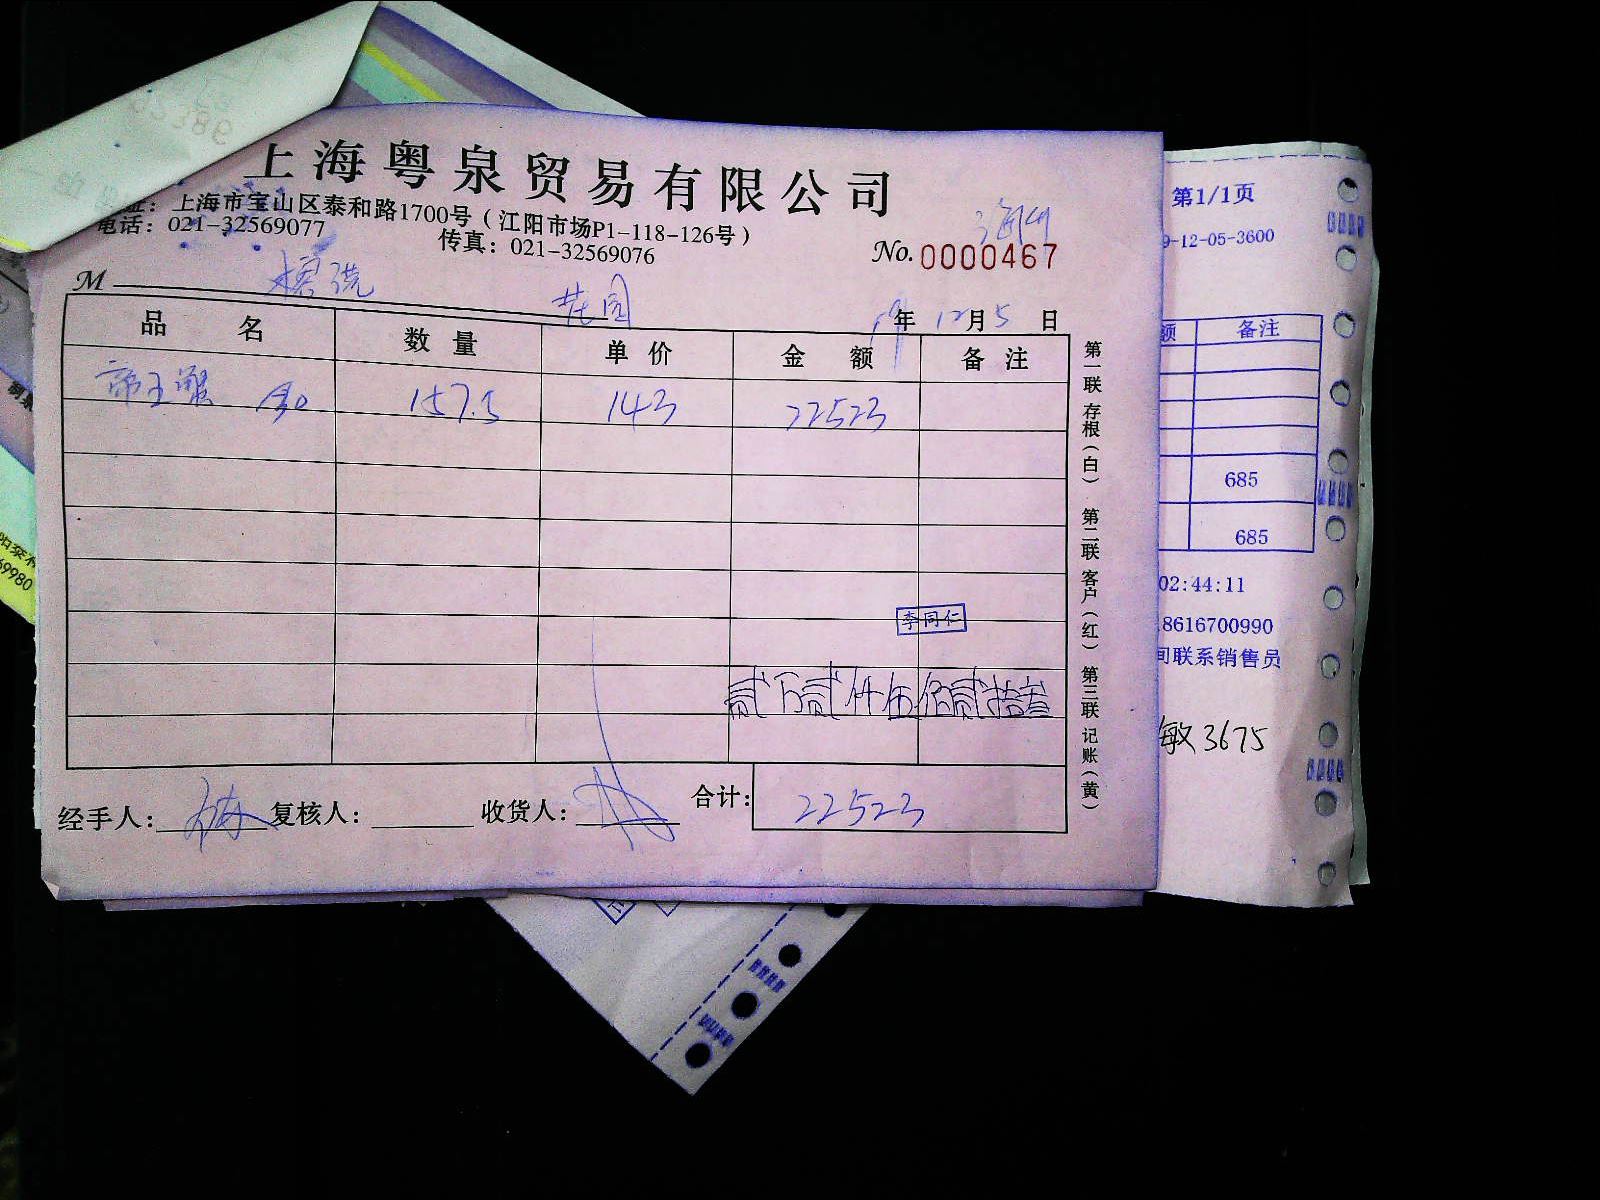 上海粤泉贸易有限公司
址：上海市宝山区泰和路1700号（江阳市场P1-118-126号）
电话：021-32569077
传真：021-32569076
No. 0000467
M
花园
年 12月5日
品名 数量 单价 金额 备注
帝王蟹 157.5 143 22523
李同仁
贰万贰仟伍佰贰拾叁
经手人： 复核人： 收货人： 合计： 22523
第一联 存根（白） 第二联 客户（红） 第三联 记账（黄）
第1/1页
9-12-05-3600
额 备注
685
685
02:44:11
8616700990
联系销售员
敏3675
69980